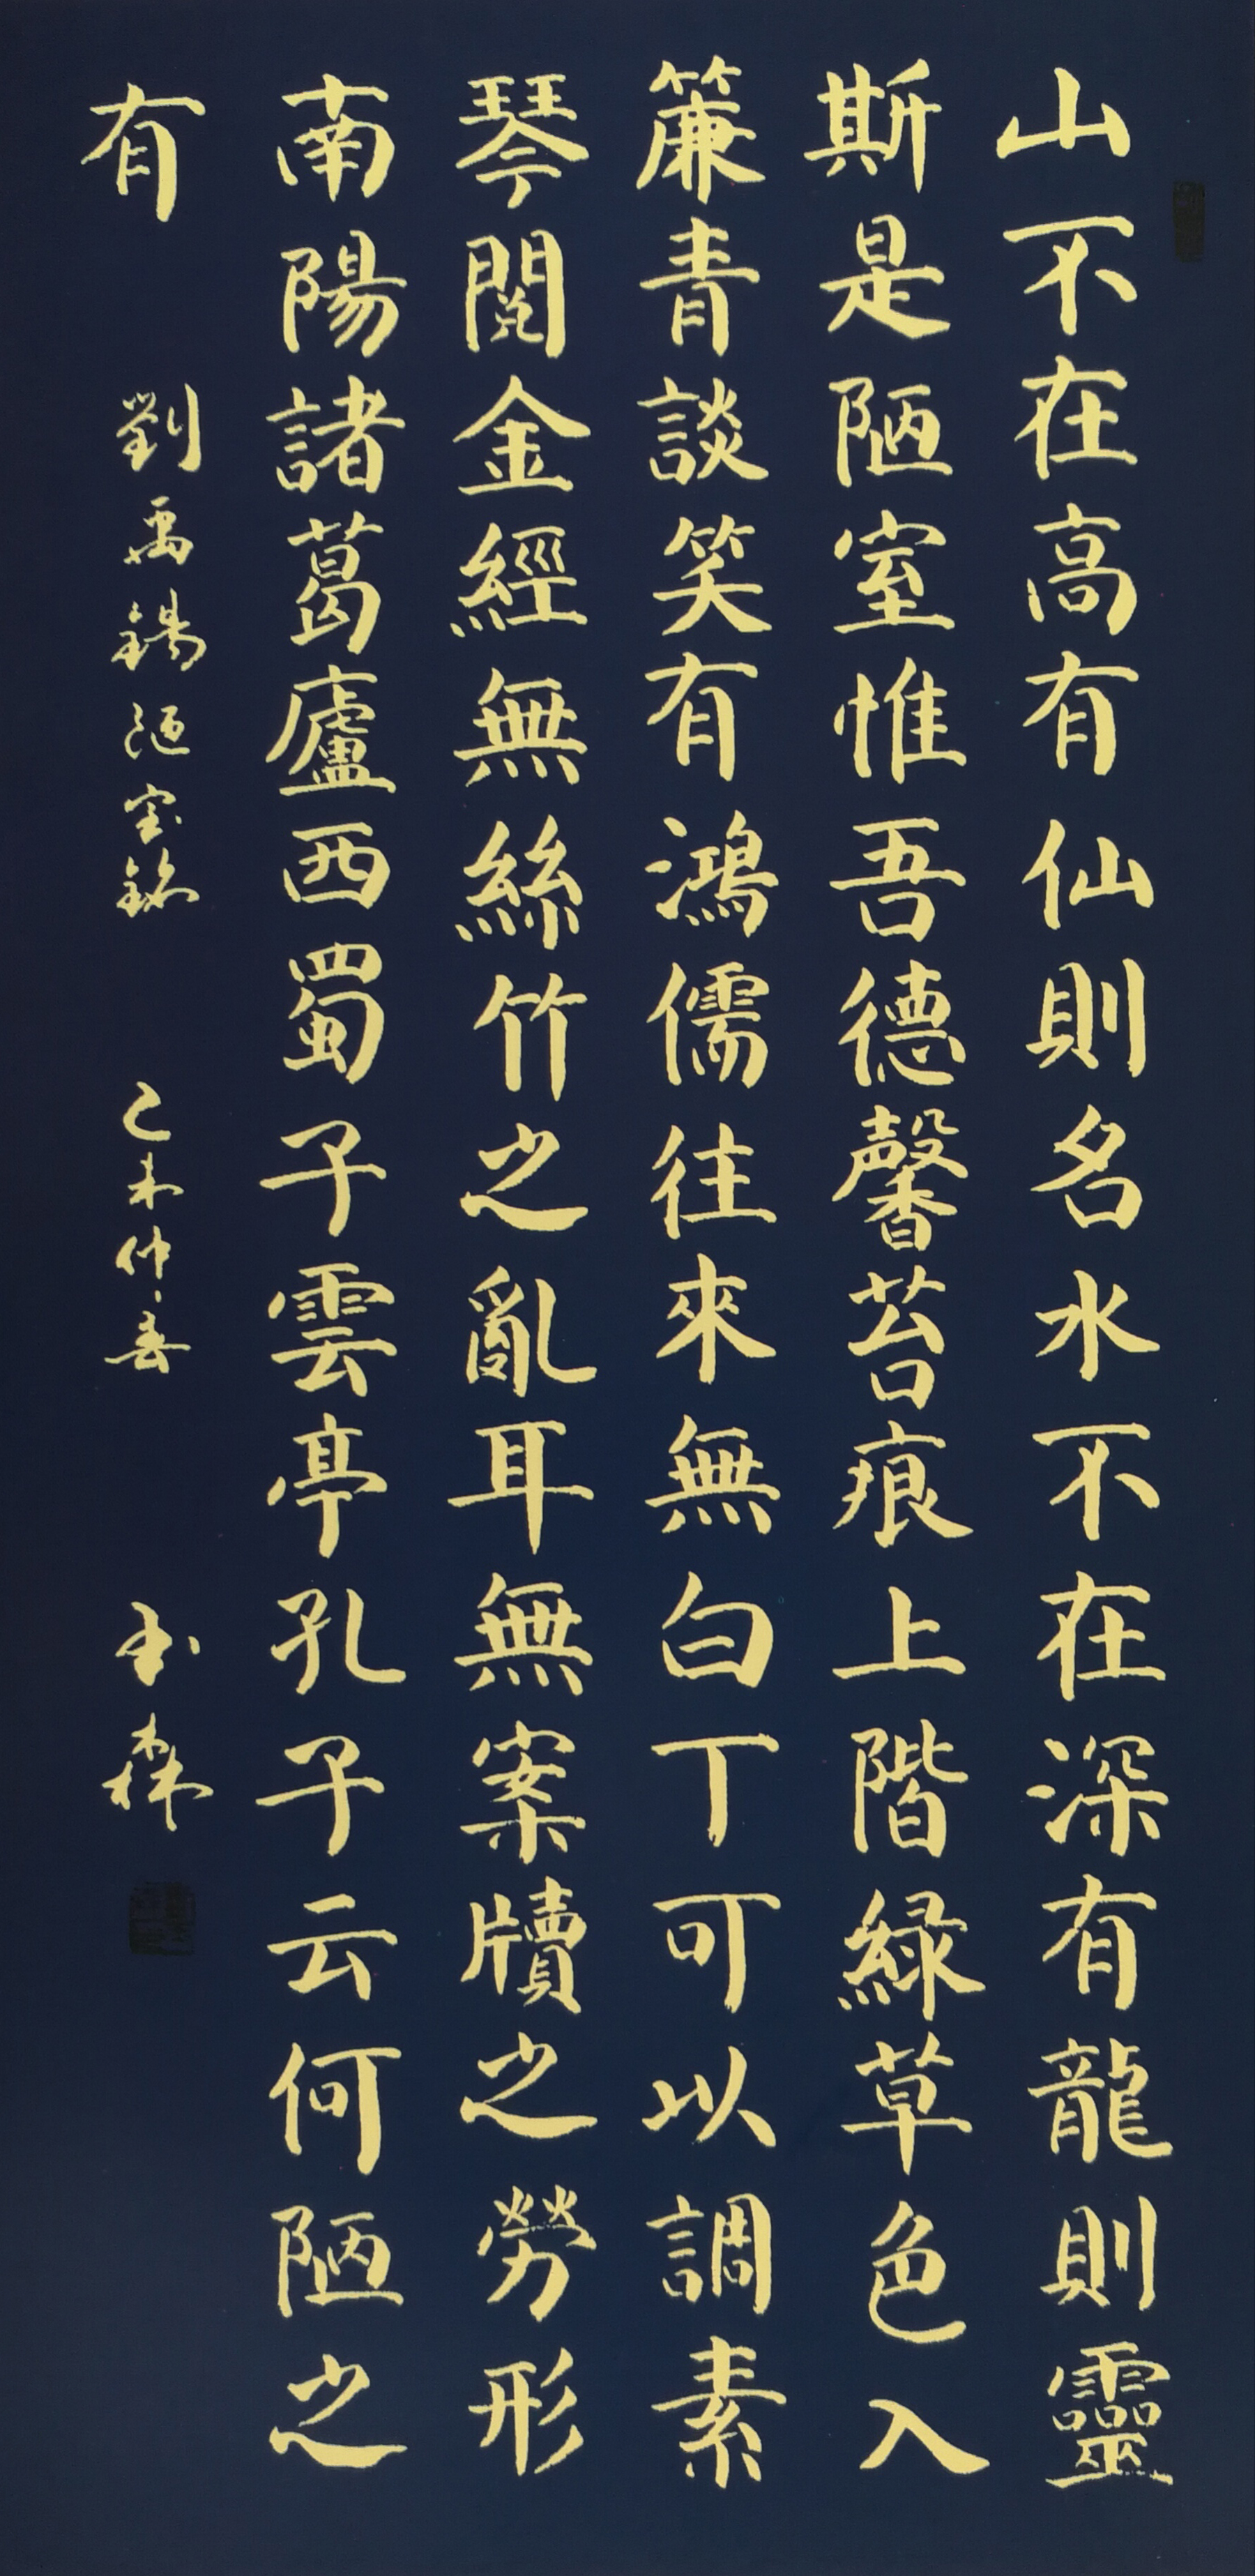 山不在高有仙則名水不在深有龍則靈
斯是陋室惟吾德馨苔痕上階緑草色入
簾青談笑有鴻儒往來無白丁可以調素
琴閱金經無絲竹之亂耳無案牘之勞形
南陽諸葛廬西蜀子雲亭孔子云何陋之
有
劉禹錫陋室銘
乙未仲春
玉森